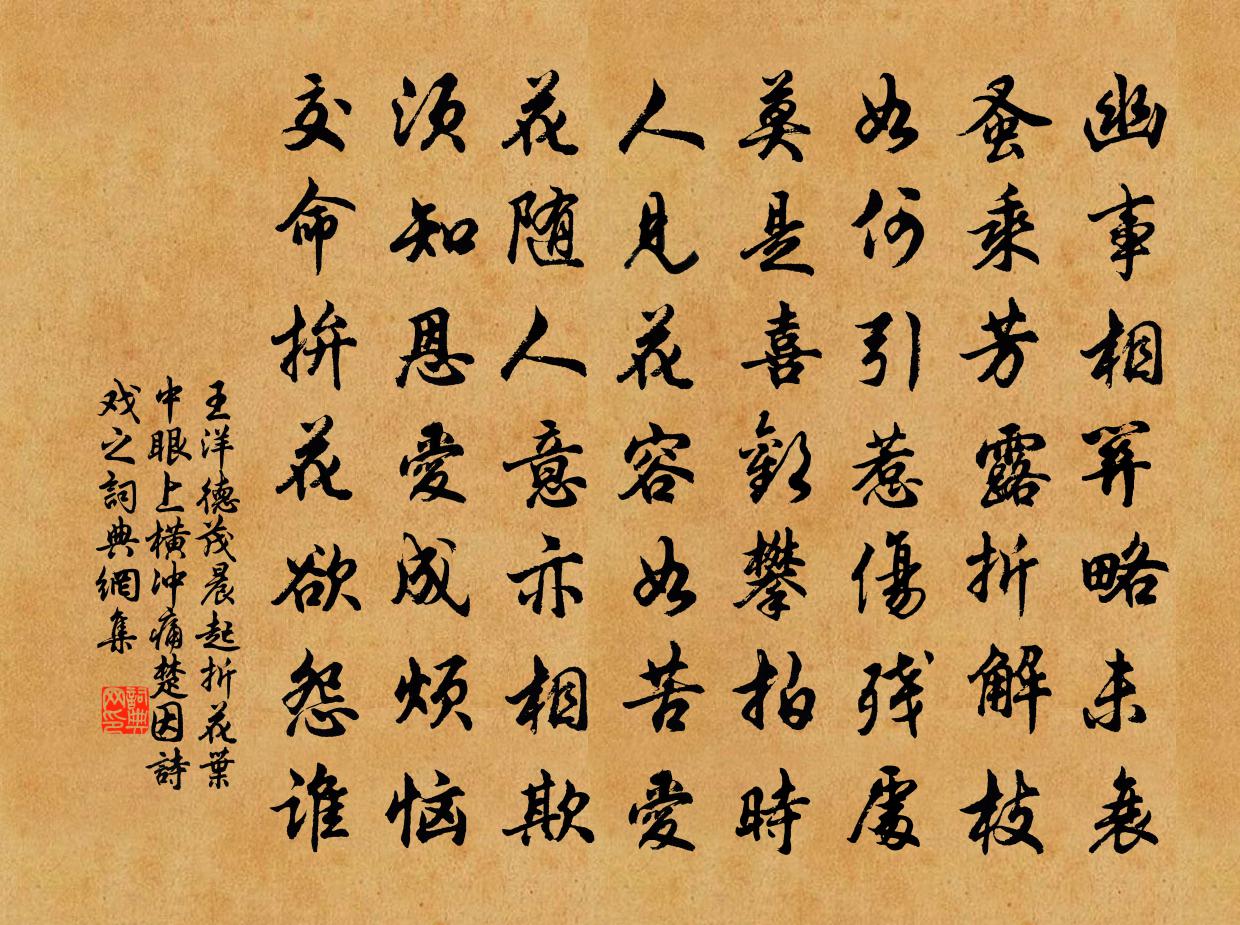 幽事相關略未衰
蚤乘芳露折解枝
如何引惹傷残處
莫是喜歡攀拍時
人見花容如苦愛
花随人意亦相欺
須知恩愛成烦恼
交命拚花欲怨谁
王洋德茂晨起折花葉
中眼上橫冲痛楚因詩
戏之詞典網集
詞典
网印